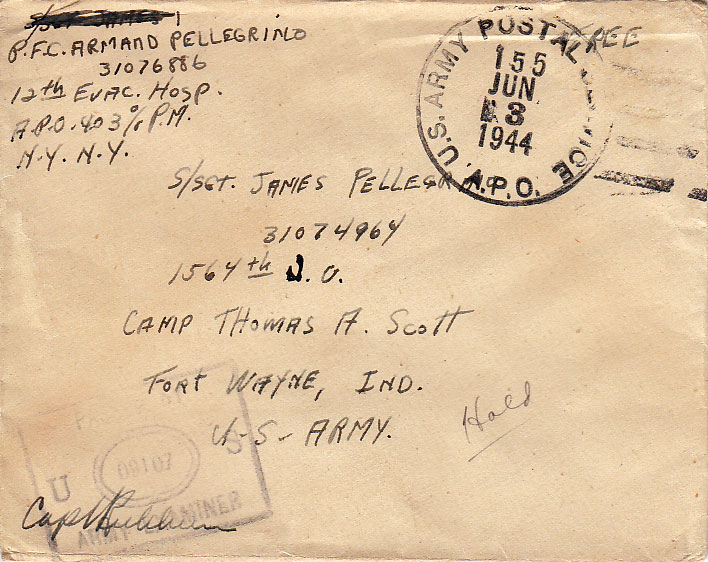 P.F.C. ARMAND PELLEGRINO
31076886
12th EVAC. HOSP.
A.P.O. 403 c/o P.M.
N.Y. N.Y.
FREE
U.S. ARMY POSTAL SERVICE
155
JUN
3
1944
A.P.O.
S/SGT. JAMES PELLEGRINO
31074964
1564th S.U.
CAMP THOMAS A. SCOTT
FORT WAYNE, IND.
U-S- ARMY.
Hold
U S
09107
ARMY EXAMINER
Capt